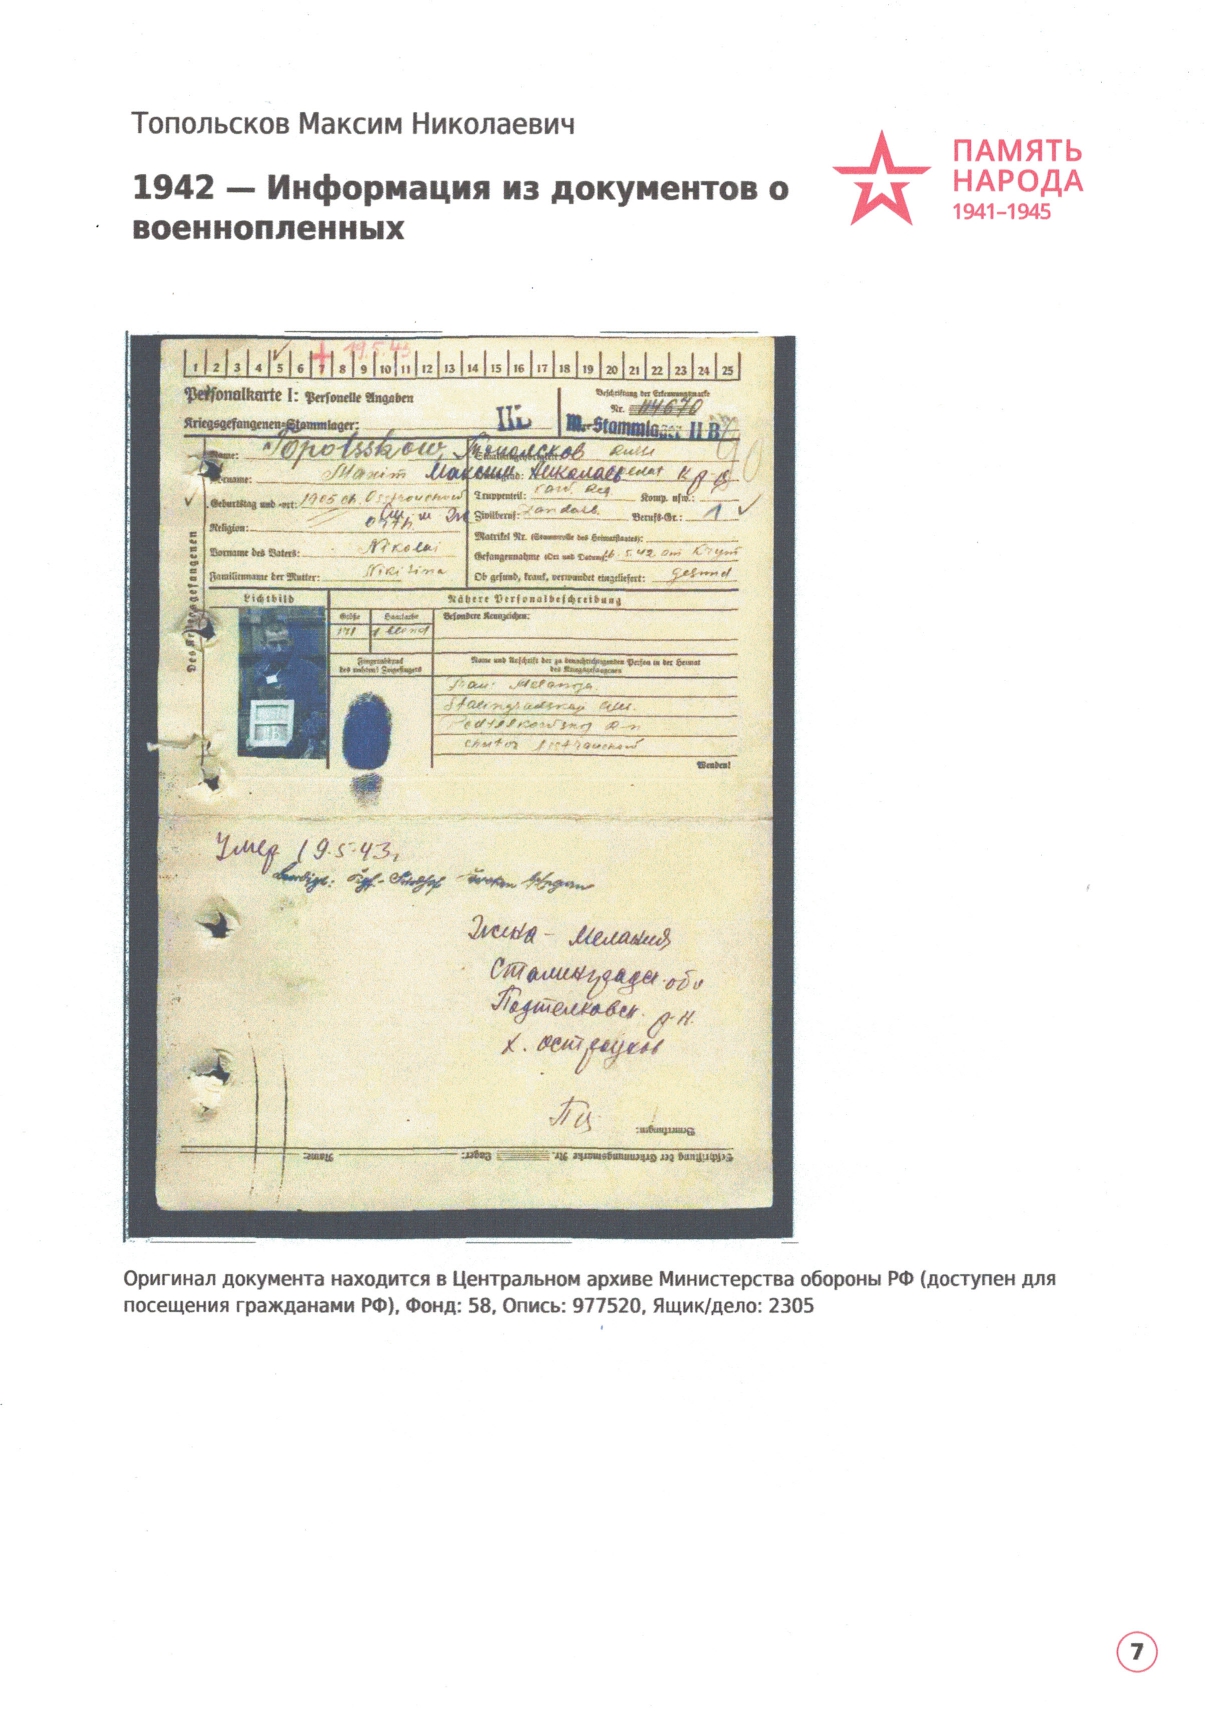 Топольсков Максим Николаевич
1942 — Информация из документов о
военнопленных
ПАМЯТЬ
НАРОДА
1941–1945
19.5.43
1 2 3 4 5 6 7 8 9 10 11 12 13 14 15 16 17 18 19 20 21 22 23 24 25
Personalkarte I: Personelle Angaben
Beschriftung der Erkennungsmarke
Nr. 114670
Kriegsgefangenen-Stammlager:
M.-Stammlager II B
Name: Topolsskow, Топольсков
Vorname: Maxim Максим Николаев
Geburtstag und -ort: 1905
Truppenteil:
Komp. usw.:
Zivilberuf: Landarb.
Berufs-Gr.: 1
Religion: orth.
Matrikel Nr. (Stammrolle des Heimatstaates):
Vorname des Vaters: Nikolai
Gefangennahme (Ort und Datum): 16.5.42 am Krym
Familienname der Mutter: Nikisina
Ob gesund, krank, verwundet eingeliefert: gesund
Des Kriegsgefangenen
Lichtbild
Nähere Personalbeschreibung
Größe
Haarfarbe
Besondere Kennzeichen:
171
blond
Fingerabdruck
des rechten! Zeigefingers
Name und Anschrift der zu benachrichtigenden Person in der Heimat
des Kriegsgefangenen
Frau: Melanja
Stalingradskaj
chutor
Wenden!
Умер 19.5.43г
Жена - Мелания
Сталинградск. обл
Подтелковск. р-н.
х. Остроухов
Bemerkungen:
Beschriftung der Erkennungsmarke Nr.
Lager:
Name:
Оригинал документа находится в Центральном архиве Министерства обороны РФ (доступен для
посещения гражданами РФ), Фонд: 58, Опись: 977520, Ящик/дело: 2305
7